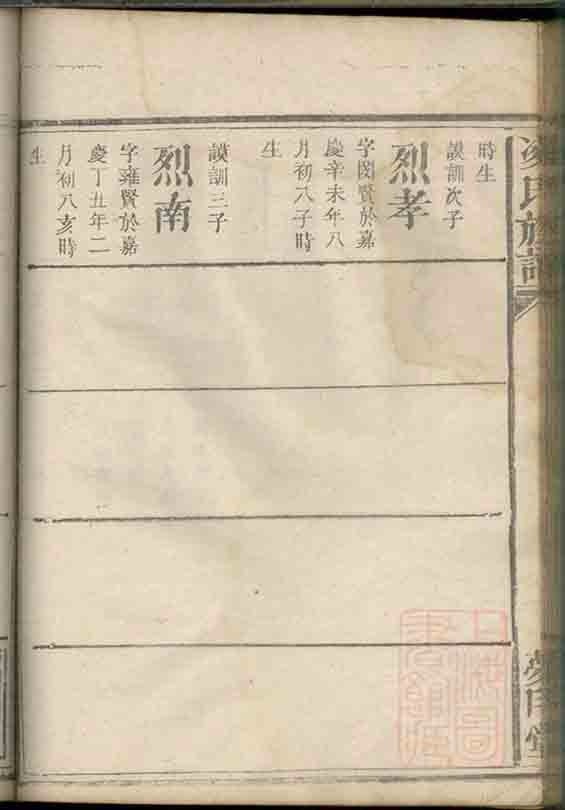 時生
謨訓次子
烈孝
字閔賢於嘉
慶辛未年八
月初八子時
生
謨訓三子
烈南
字雍賢於嘉
慶丁丑年二
月初八亥時
生
氏族譜